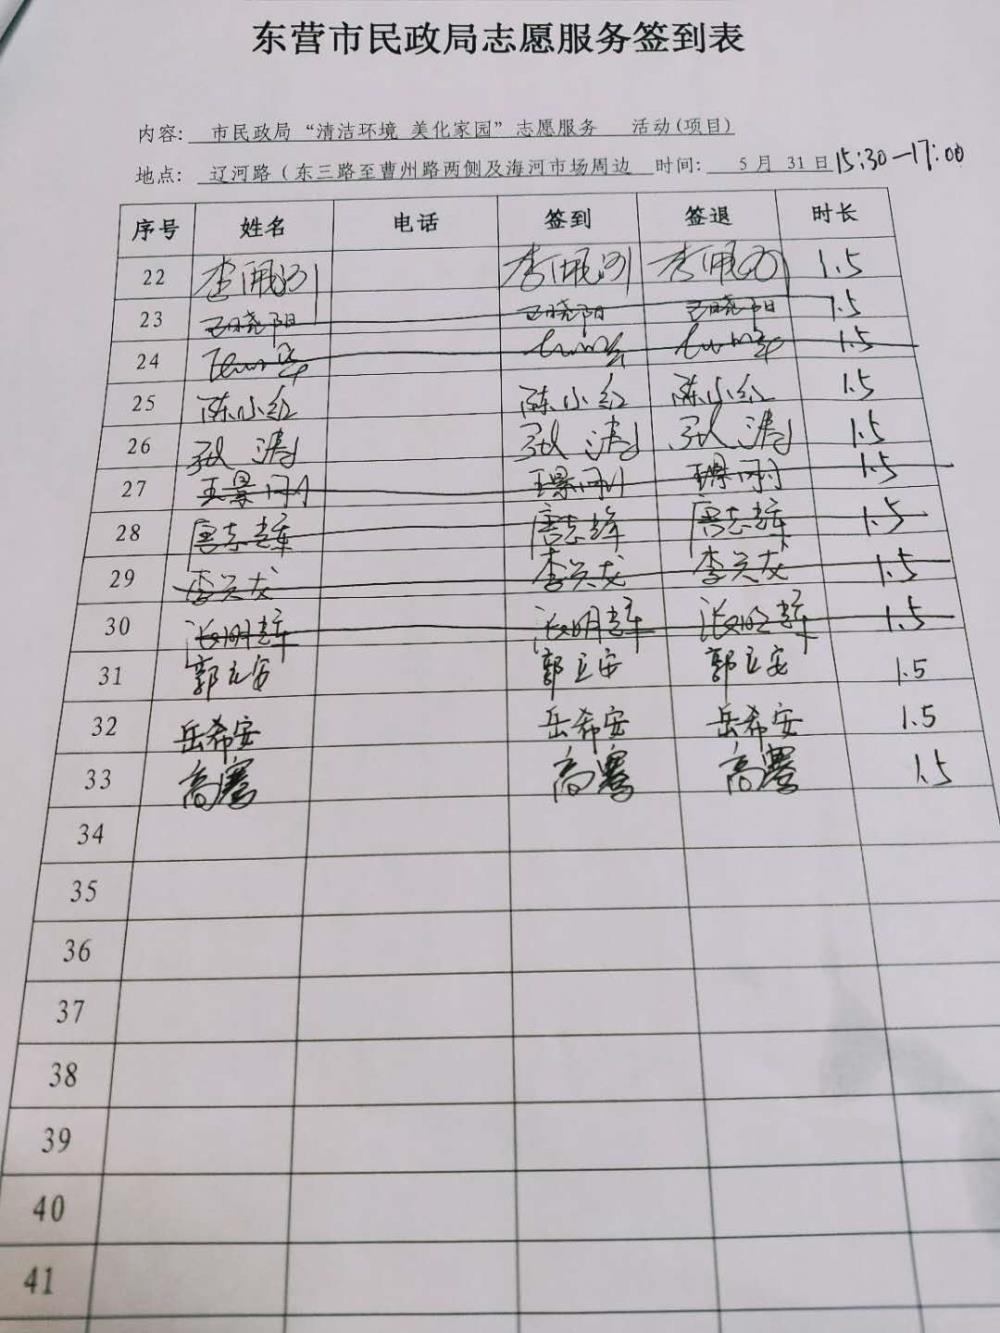 东营市民政局志愿服务签到表
内容: 市民政局 “清洁环境 美化家园” 志愿服务 活动(项目)
地点: 辽河路 ( 东三路至曹州路两侧及海河市场周边 时间: 5 月 31 日 15:30-17:00
序号 姓名 电话 签到 签退 时长
22 李佩 李佩 李佩 1.5
23 王晓阳 王晓阳 王晓阳 1.5
24 1.5
25 陈小红 陈小红 陈小红 1.5
26 张涛 张涛 张涛 1.5
27 王景刚 王景刚 王景刚 1.5
28 唐志 唐志 唐志 1.5
29 李兴友 李兴友 李兴友 1.5
30 张明 张明 张明 1.5
31 郭立安 郭立安 郭立安 1.5
32 岳希安 岳希安 岳希安 1.5
33 高 高 高 1.5
34
35
36
37
38
39
40
41